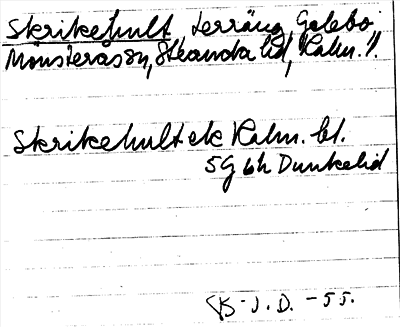 Skrikehult, terräng, Galebo
Mönsterås sn, Stranda hd, Kalm. l.
Skrikehult ek Kalm. bl.
5G 6h Dunkelid
J.D. -55.